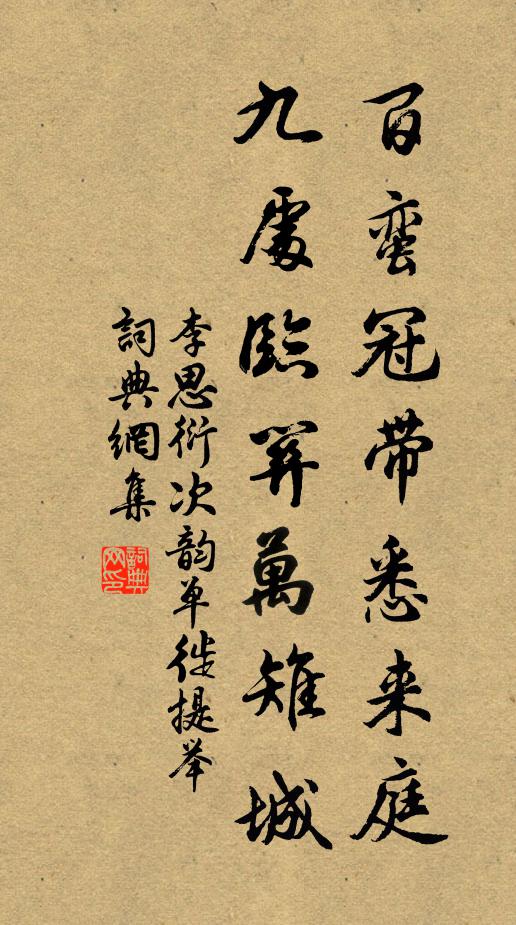 百蛮冠带悉来庭
九處臨開萬雉城
李思衍次韵单徙提举
詞典網集
詞典网印